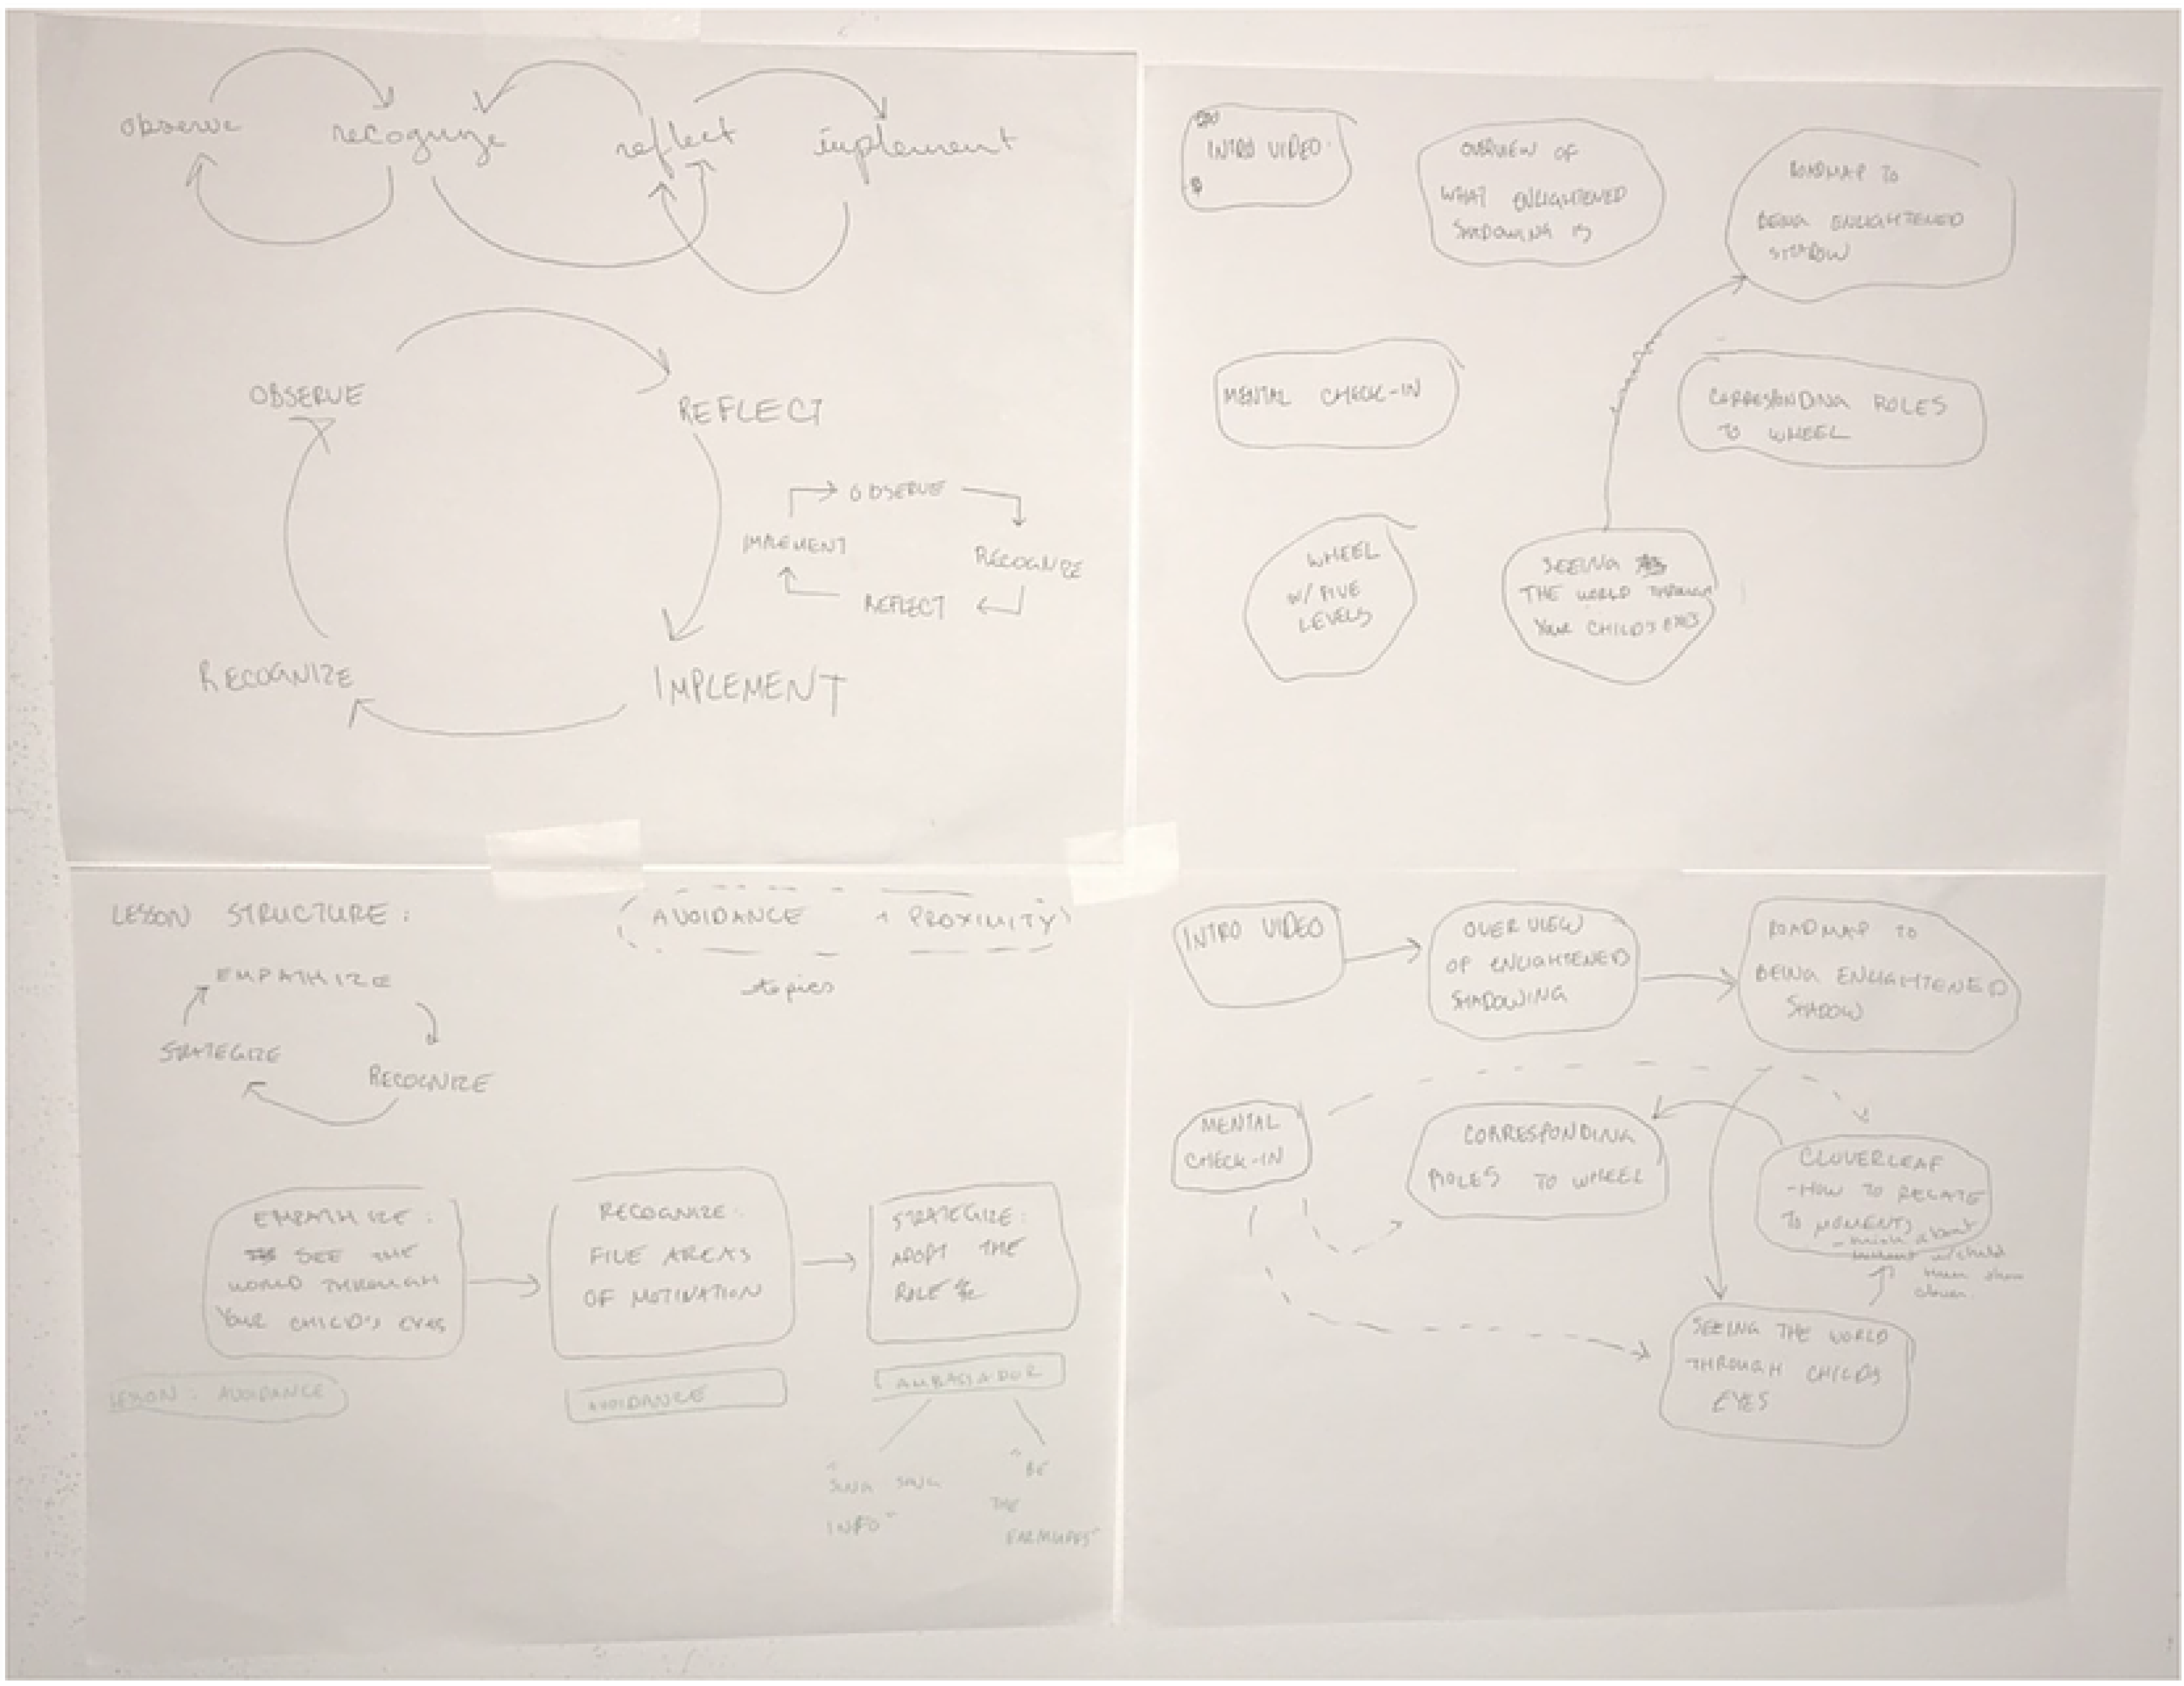 observe recognize reflect implement
OBSERVE
REFLECT
OBSERVE
IMPLEMENT
RECOGNIZE
REFLECT
RECOGNIZE
IMPLEMENT
INTRO VIDEO
OVERVIEW OF
WHAT ENLIGHTENED
SHADOWING IS
ROADMAP TO
BEING ENLIGHTENED
SHADOW
MENTAL CHECK-IN
CORRESPONDING ROLES
TO WHEEL
WHEEL
W/ FIVE
LEVELS
SEEING
THE WORLD THROUGH
YOUR CHILD'S EYES
LESSON STRUCTURE:
AVOIDANCE
PROXIMITY
topics
EMPATHIZE
STRATEGIZE
RECOGNIZE
EMPATHIZE:
SEE THE
WORLD THROUGH
YOUR CHILD'S EYES
RECOGNIZE:
FIVE AREAS
OF MOTIVATION
STRATEGIZE:
ADOPT THE
ROLE
LESSON: AVOIDANCE
AVOIDANCE
AMBASSADOR
"SING SONG
INFO"
"BE
THE
EARMUFFS"
INTRO VIDEO
OVERVIEW
OF ENLIGHTENED
SHADOWING
ROADMAP TO
BEING ENLIGHTENED
SHADOW
MENTAL
CHECK-IN
CORRESPONDING
ROLES TO WHEEL
CLOVERLEAF
-HOW TO RELATE
TO MOMENTS
- think about
moment w/child
then show
clover
SEEING THE WORLD
THROUGH CHILD'S
EYES